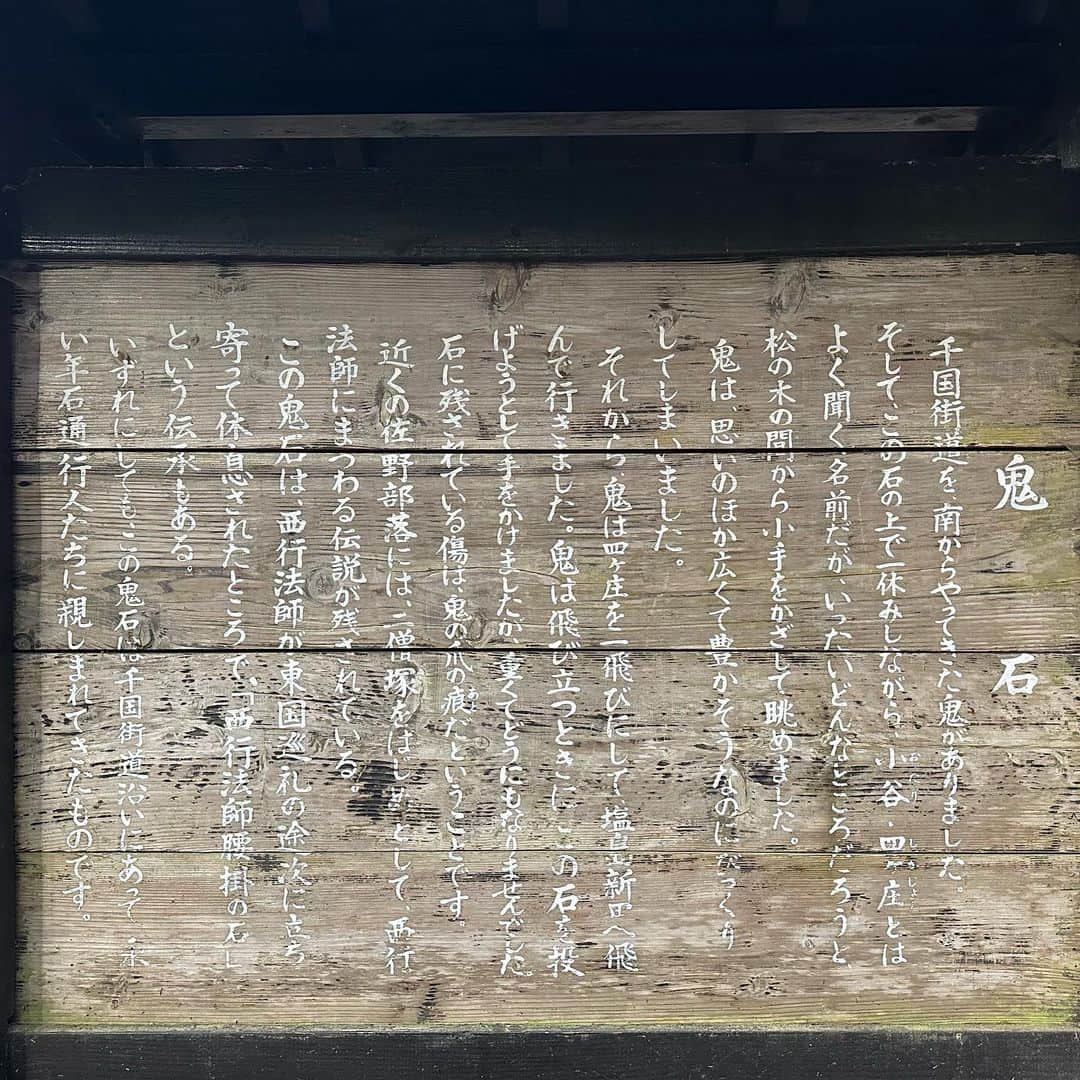 鬼石
千国街道を、南からやってきた鬼がありました。
そしてこの石の上で一休みしながら、小谷・四ヶ庄とは
よく聞く名前だが、いったいどんなところだろうと、
松の木の間から小手をかざして眺めました。
鬼は、思いのほか広くて豊かそうなのにびっくり
してしまいました。
それから鬼は四ヶ庄を一飛びにして、塩島新田へ飛
んで行きました。鬼は飛び立つときに、この石を投
げようとして手をかけましたが、重くてどうにもなりませんでした。
石に残されている傷は、鬼の爪の痕だということです。
近くの佐野部落には、二僧塚をはじめとして、西行
法師にまつわる伝説が残されている。
この鬼石は、西行法師が東国巡礼の途次に立ち
寄って休息されたところで、「西行法師腰掛の石」
という伝承もある。
いずれにしても、この鬼石は千国街道沿いにあって、永
い年石通行人たちに親しまれてきたものです。